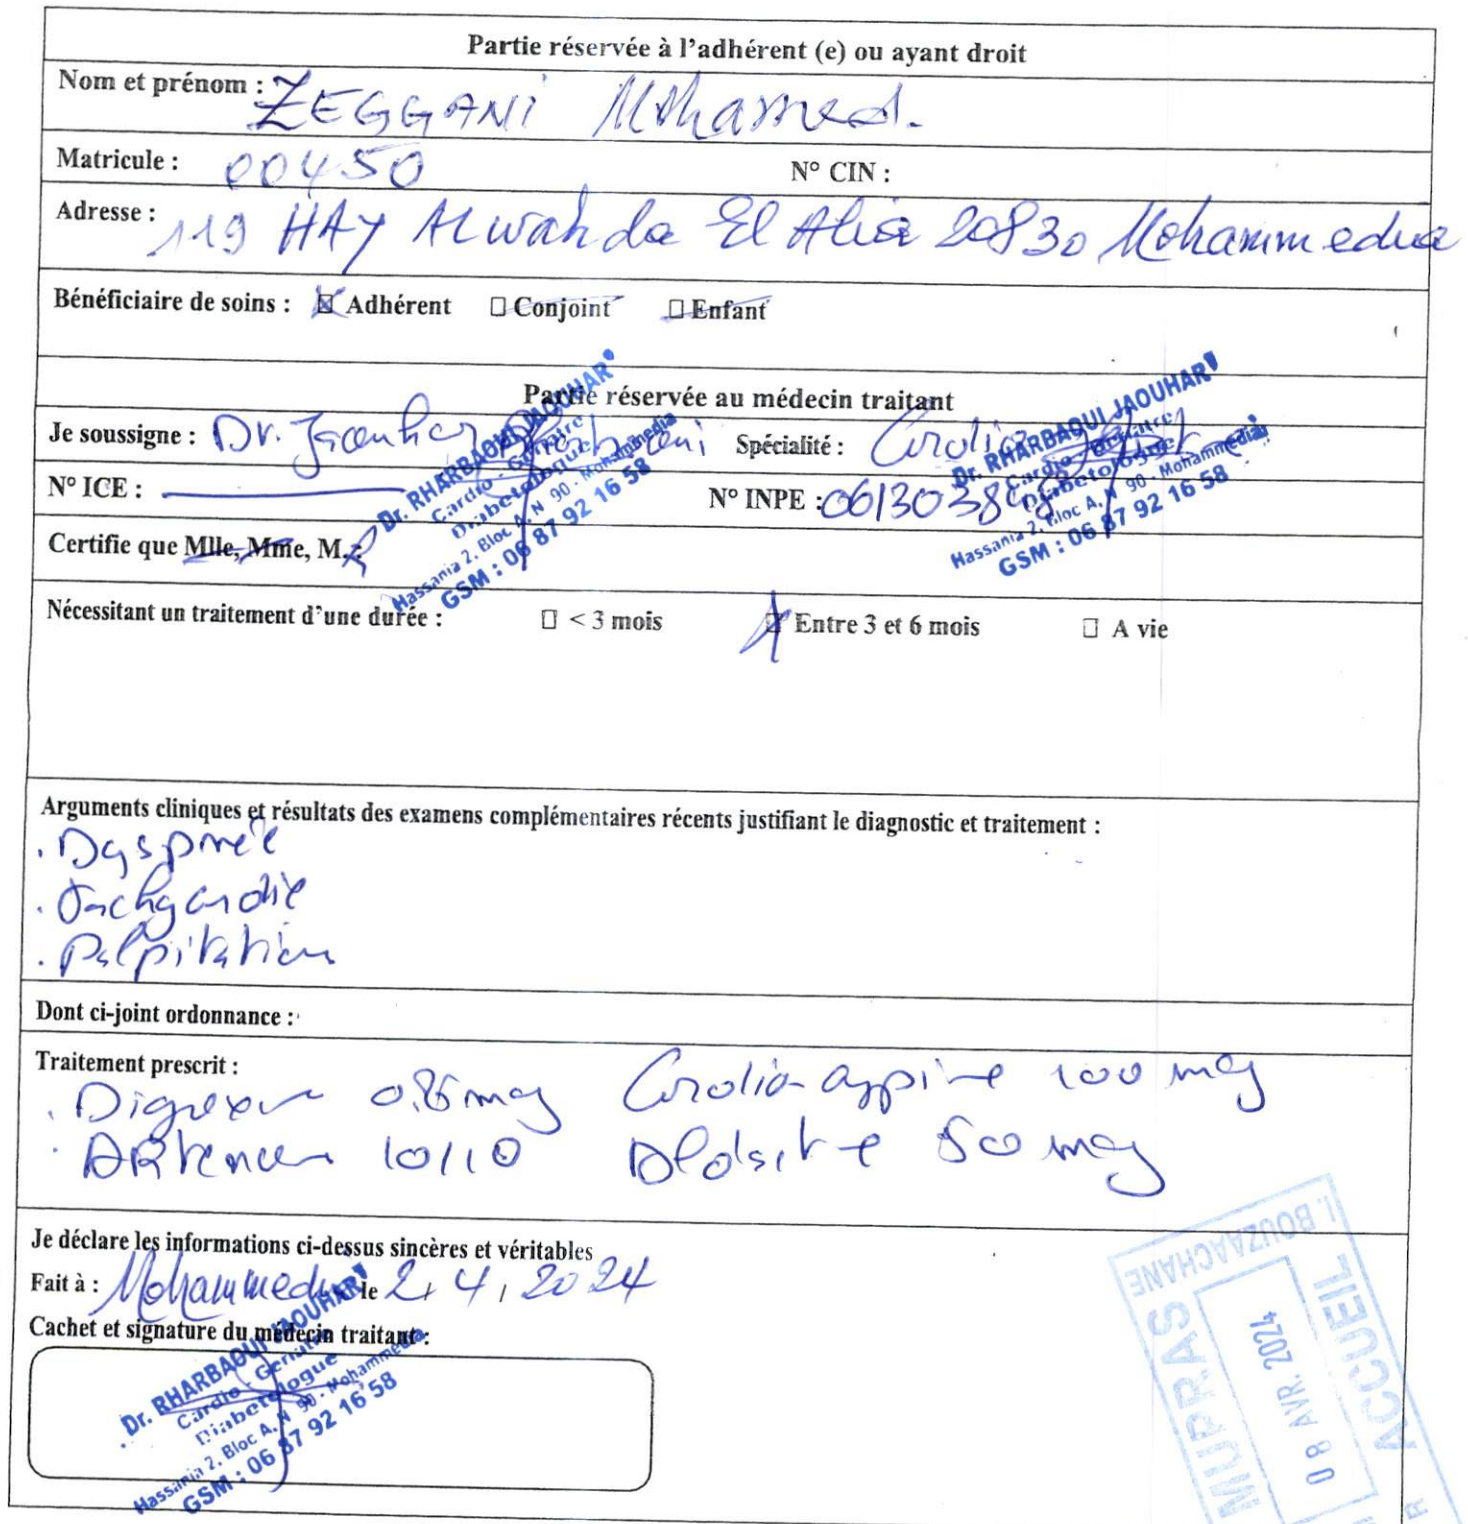 Partie réservée à l'adhérent (e) ou ayant droit
Nom et prénom : ZEGGANI Mohamed.
Matricule : 00450 N° CIN :
Adresse : 119 HAY ALwahda El Alia 20830 Mohammedia
Bénéficiaire de soins : ☒ Adhérent ☐ Conjoint ☐ Enfant
Partie réservée au médecin traitant
Je soussigne : Dr. Jaouhar Spécialité :
Dr. RHARBAOUI JAOUHAR
Cardio - Geriatre
Diabetologue
Hassania 2, Bloc A, N 90 - Mohammedia
GSM : 06 87 92 16 58
Dr. RHARBAOUI JAOUHAR
Cardio - Geriatre
Diabetologue
Hassania 2, Bloc A, N 90 - Mohammedia
GSM : 06 87 92 16 58
N° ICE : N° INPE : 0613038
Certifie que Mlle, Mme, M. :
Nécessitant un traitement d'une durée : ☐ < 3 mois ☒ Entre 3 et 6 mois ☐ A vie
Arguments cliniques et résultats des examens complémentaires récents justifiant le diagnostic et traitement :
. Dyspnée
. Tachycardie
. Palpitation
Dont ci-joint ordonnance :
Traitement prescrit :
. Cardio-aspirine 100 mg
. 10/10 50 mg
Je déclare les informations ci-dessus sincères et véritables
Fait à : Mohammedia le 2, 4, 2024
Cachet et signature du médecin traitant :
Dr. RHARBAOUI JAOUHAR
Cardio - Geriatre
Diabetologue
Hassania 2, Bloc A, N 90 - Mohammedia
GSM : 06 87 92 16 58
I. BOUZAACHANE
MUPRAS
08 AVR. 2024
ACCUEIL